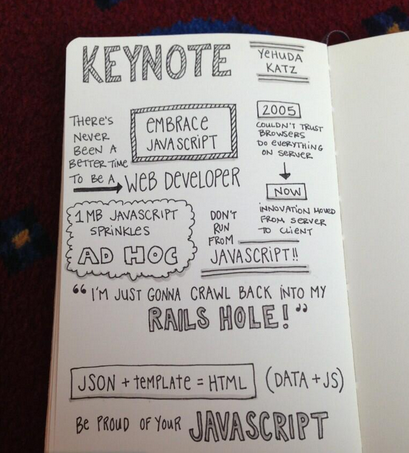 KEYNOTE
YEHUDA
KATZ
THERE'S
NEVER
BEEN A
BETTER TIME
TO BE A
WEB DEVELOPER
EMBRACE
JAVASCRIPT
2005
COULDN'T TRUST
BROWSERS
DO EVERYTHING
ON SERVER
NOW
INNOVATION MOVED
FROM SERVER
TO CLIENT
1 MB JAVASCRIPT
SPRINKLES
AD HOC
DON'T
RUN
FROM
JAVASCRIPT!!
“I'M JUST GONNA CRAWL BACK INTO MY
RAILS HOLE!”
JSON + template = HTML (DATA + JS)
Be PROUD OF YOUR JAVASCRIPT